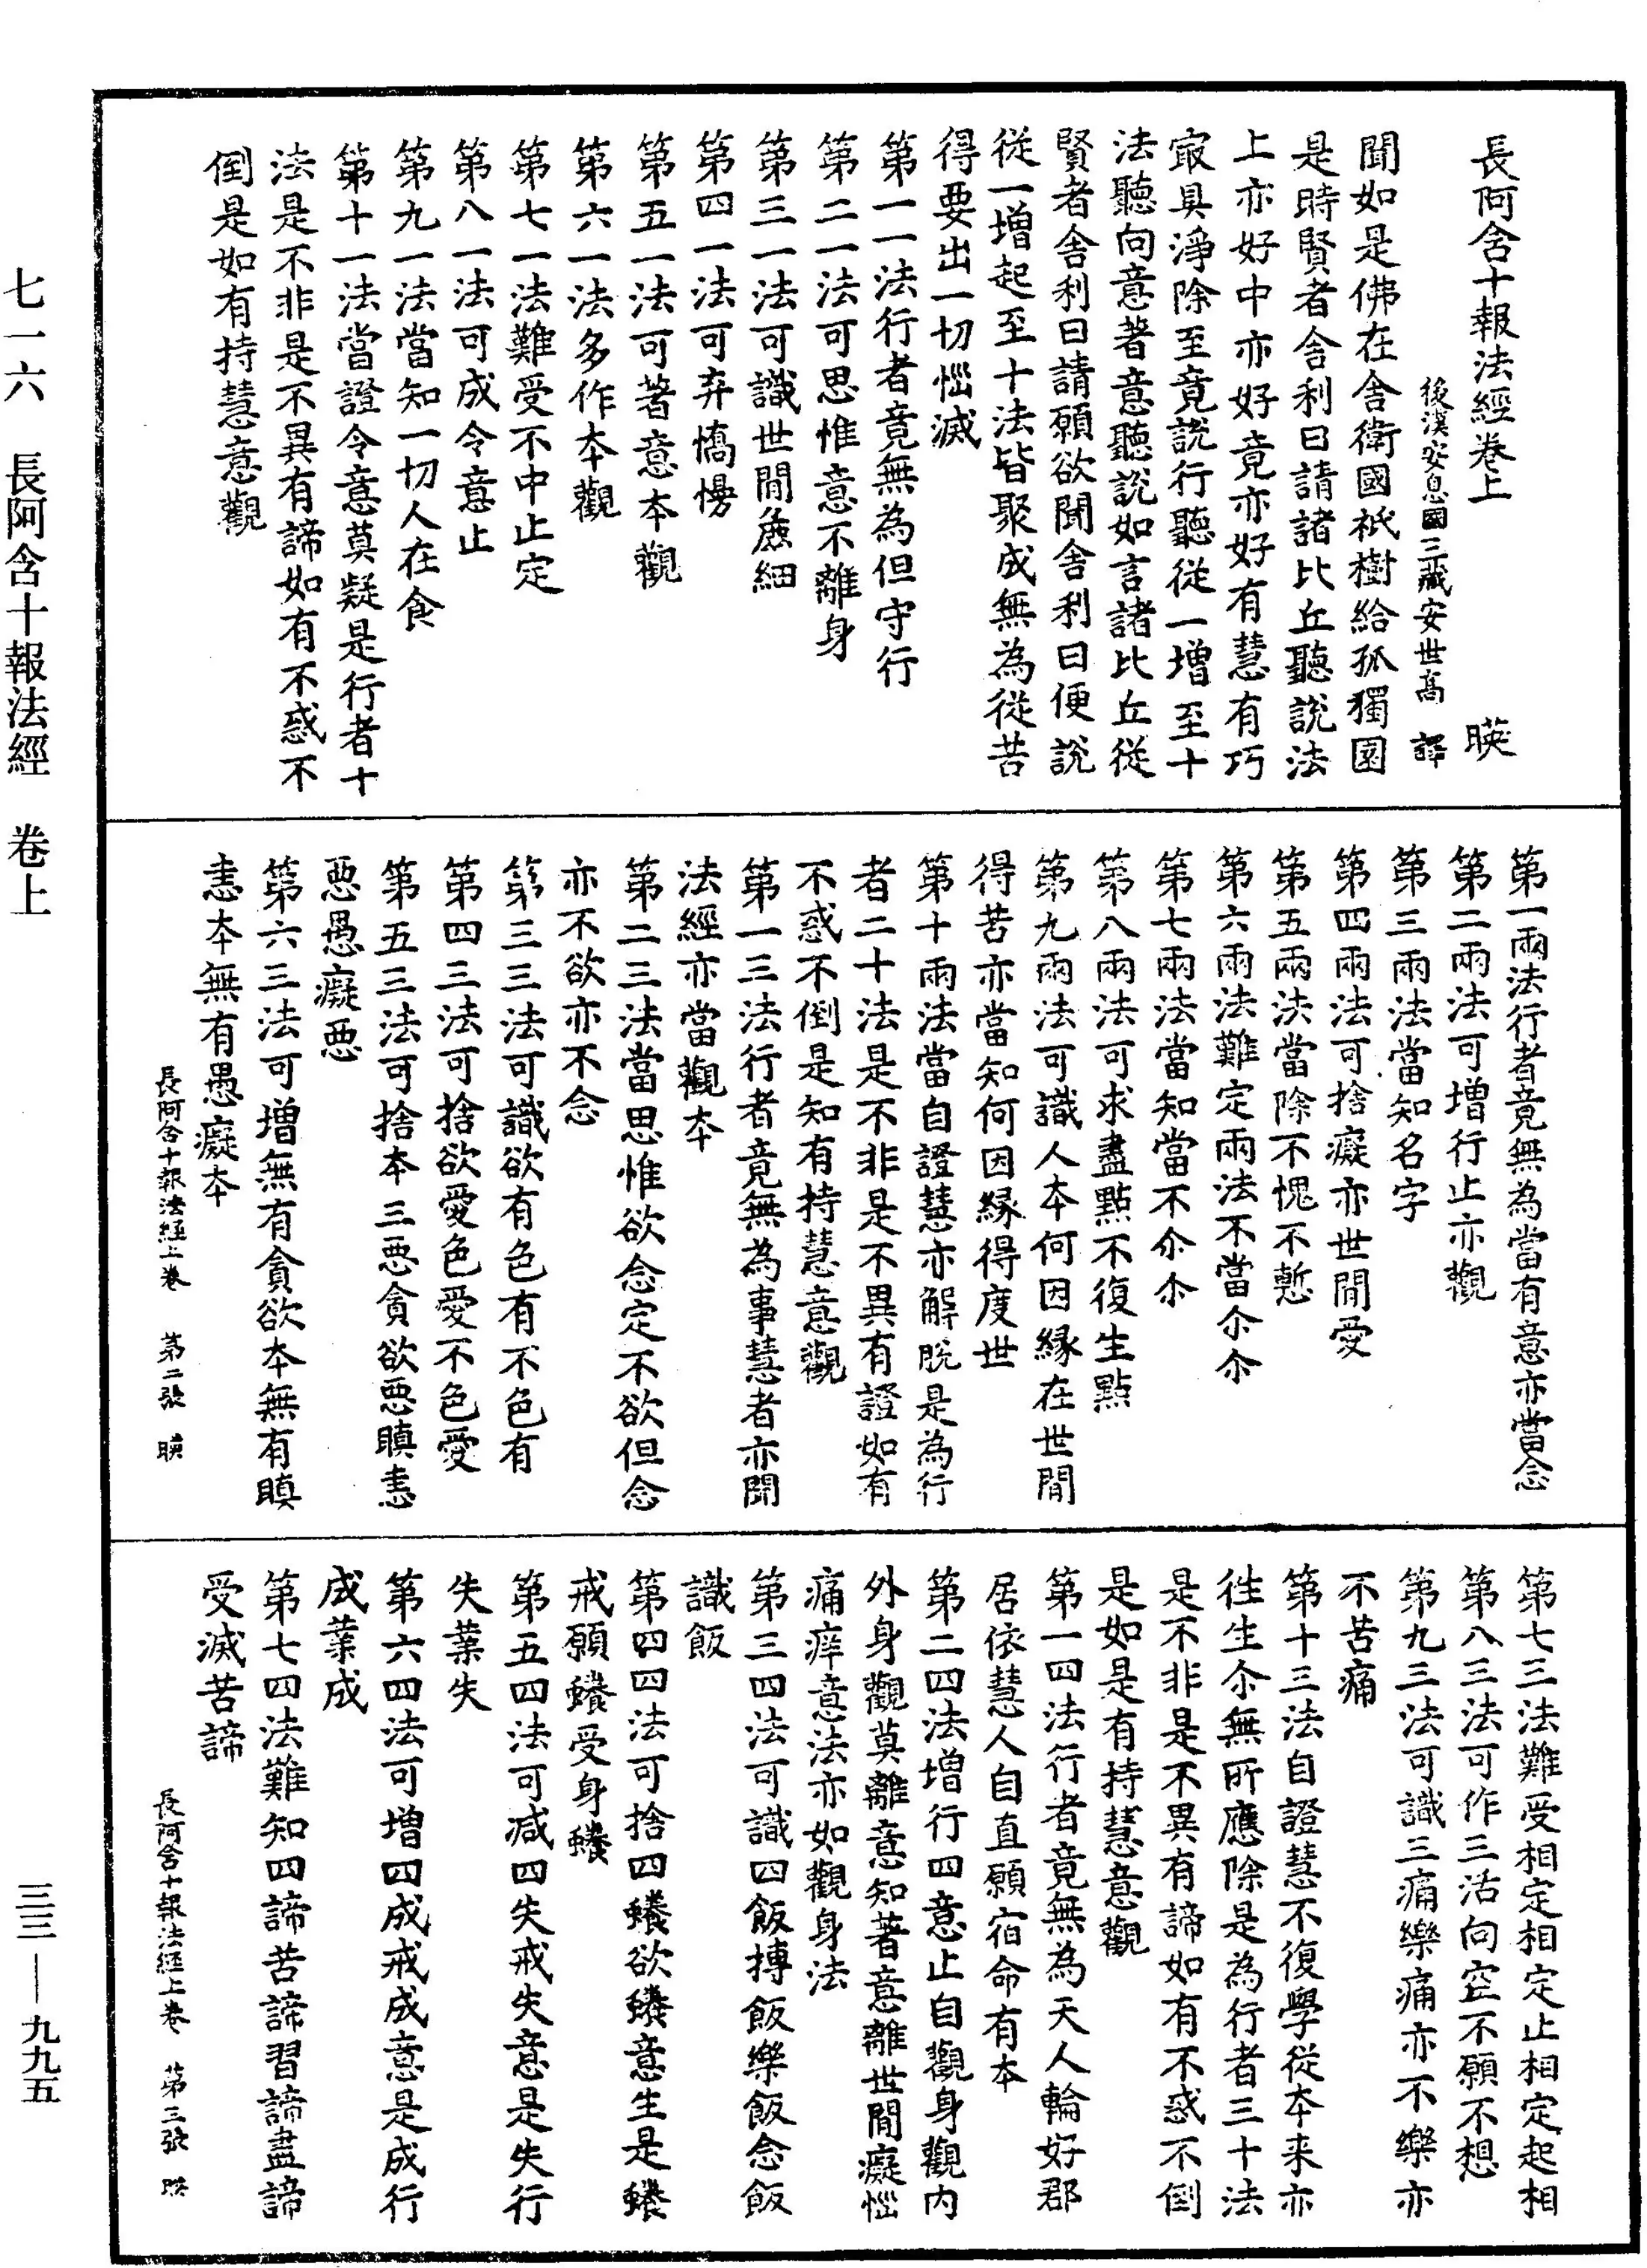 長阿含十報法經卷上 暎
後漢安息國三藏安世高 譯
聞如是佛在舍衛國祇樹給孤獨園
是時賢者舍利曰請諸比丘聽說法
上亦好中亦好竟亦好有慧有巧
㝡具淨除至竟說行聽從一增至十
法聽向意著意聽說如言諸比丘從
賢者舍利曰請願欲聞舍利曰便說
從一增起至十法皆聚成無為從苦
得要出一切惱滅
第一一法行者竟無為但守行
第二一法可思惟意不離身
第三一法可識世閒麁細
第四一法可弃憍慢
第五一法可著意本觀
第六一法多作本觀
第七一法難受不中止定
第八一法可成令意止
第九一法當知一切人在食
第十一法當證令意莫疑是行者十
法是不非是不異有諦如有不惑不
倒是如有持慧意觀
第一兩法行者竟無為當有意亦當念
第二兩法可增行止亦觀
第三兩法當知名字
第四兩法可捨癡亦世間愛
第五兩法當除不愧不慙
第六兩法難定兩法不當尒尒
第七兩法當知當不尒尒
第八兩法可求盡點不復生點
第九兩法可識人本何因緣在世間
得苦亦當知何因緣得度世
第十兩法當自證慧亦解脫是為行
者二十法是不非是不異有證如有
不惑不倒是知有持慧意觀
第一三法行者竟無為事慧者亦聞
法經亦當觀本
第二三法當思惟欲念定不欲但念
亦不欲亦不念
第三三法可識欲有色有不色有
第四三法可捨欲愛色愛不色愛
第五三法可捨本三惡貪欲惡瞋恚
惡愚癡惡
第六三法可增無有貪欲本無有瞋
恚本無有愚癡本
長阿含十報法經上卷 第二張 暎
第七三法難受相定相定止相定起相
第八三法可作三活向空不願不想
第九三法可識三痛樂痛亦不樂亦
不苦痛
第十三法自證慧不復學從本来亦
往生尒無所應除是為行者三十法
是不非是不異有諦如有不惑不倒
是如是有持慧意觀
第一四法行者竟無為天人輪好郡
居依慧人自直願宿命有本
第二四法增行四意止自觀身觀内
外身觀莫離意知著意離世間癡惱
痛痒意法亦如觀身法
第三四法可識四飯摶飯樂飯念飯
識飯
第四四法可捨四蠡欲蠡意生是蠡
戒願蠡受身蠡
第五四法可減四失戒失意是失行
失業失
第六四法可增四成戒成意是成行
成業成
第七四法難知四諦苦諦習諦盡諦
受滅苦諦
長阿含十報法經上卷 第三張 暎
七一六 長阿含十報法經 卷上
三三—九九五